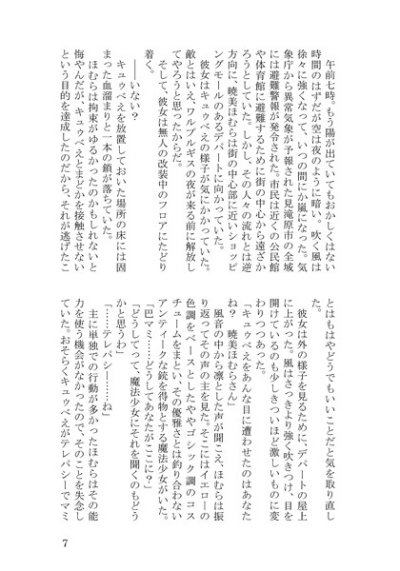 午前七時。もう陽が出ていてもおかしくはない
時間のはずだが空は夜のように暗い。吹く風は
徐々に強くなって、いつの間にか嵐になった。気
象庁から異常気象が予報された見滝原市の全域
には避難警報が発令された。市民は近くの公民館
や体育館に避難するために街の中心から遠ざか
ろうとしていた。しかし、その人々の流れとは逆
方向に、暁美ほむらは街の中心部に近いショッピ
ングモールのあるデパートに向かっていた。
彼女はキュゥべえの様子が気にかかっていた。
敵とはいえ、ワルプルギスの夜が来る前に解放し
てやろうと思ったからだ。
そして、彼女は無人の改装中のフロアにたどり
着く。
――いない？
キュゥべえを放置しておいた場所の床には固
まった血溜まりと一本の鎖が落ちていた。
ほむらは拘束がゆるかったのかもしれないと
悔やんだが、キュゥべえとまどかを接触させない
という目的を達成したのだから、それが逃げたこ
とはもはやどうでもいいことだと気を取り直し
た。
彼女は外の様子を見るために、デパートの屋上
に上がった。風はさっきより強く吹きつけ、目を
開けているのも少しきついほど激しいものに変
わりつつあった。
「キュゥべえをあんな目に遭わせたのはあなた
ね？　暁美ほむらさん」
風音の中から凛とした声が聞こえ、ほむらは振
り返ってその声の主を見た。そこにはイエローの
色調をベースとしたややゴシック調のコス
チュームをまとい、その優雅さとは釣り合わない
アンティークな銃を得物とする魔法少女がいた。
「巴マミ……どうしてあなたがここに？」
「どうしてって、魔法少女にそれを聞くのもどう
かと思うわ」
「……テレパシー……ね」
主に単独での行動が多かったほむらはその能
力を使う機会がなかったので、そのことを失念し
ていた。おそらくキュゥべえがテレパシーでマミ
7